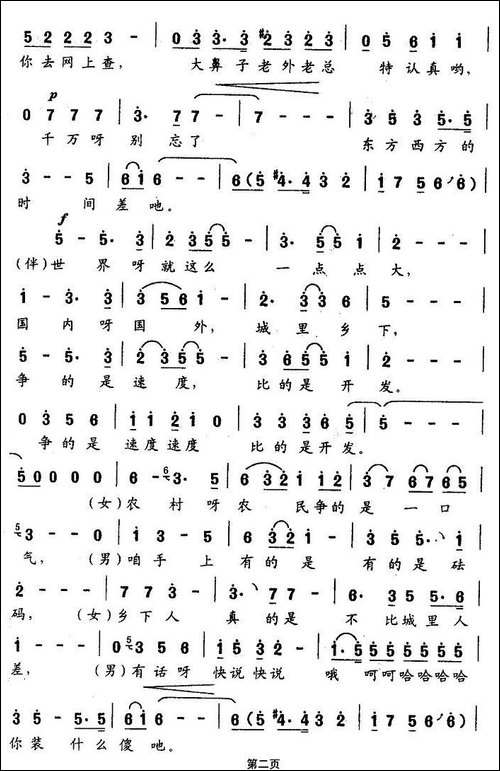 5 2 2 2 3 - | 0 3 3· 3 #2 3 2 3 | 0 5 6 1 1
你去网上查， 大鼻子老外老总 特认真哟，
p
0 7 7 7 | 3· 7 7 - | 7 - - - | 3 5 3 5·5
千万呀别忘了 东方西方的
3 - - 5 | 6 1 6 - - | 6 (5 #4·4 3 2 | 1 7 5 6 6)
时 间差吔。
f
5 - 5· 3 | 2 3 5 5 - | 3· 5 5 1 | 2 - - -
(伴)世界呀就这么 一点点大，
1 - 3· 3 | 3 5 6 1 - | 2· 3 3 6 | 5 - - -
国内呀国外， 城里乡下，
5 - 5· 3 | 2 3 5 5 - | 3 6 5 5 1 | 2 - - -
争的是速度， 比的是开发。
0 3 5 6 | 1 1 2 1 0 | 3 3 3 6 5 | 5 - - -
争的是速度速度 比的是开发。
5 0 0 0 0 | 6 - 6 3· 5 | 6 3 2 1 1 2 | 3 7 6 7 6 5
(女)农村呀农 民争的是一口
5 3 - - 0 | 1 3 - 5 | 6 3 2 1 - | 3 5 5· 1
气， (男)咱手上有的是 有的是砝
2 - - - | 7 7 3 - | 3· 7 7 - | 6· 3 5 5·6
码， (女)乡下人真的是 不比城里人
1 - - - | 0 5 3 5 6 | 1 5 3 2 | 1·5 5 5 5 5 5 5
差， (男)有话呀快说快说 哦 呵呵哈哈哈哈
3 5 - 5·5 | 6 1 6 - - | 6 (5 3 #4·4 3 2 | 1 7 5 6 6)
你装 什么傻吔。
第二页